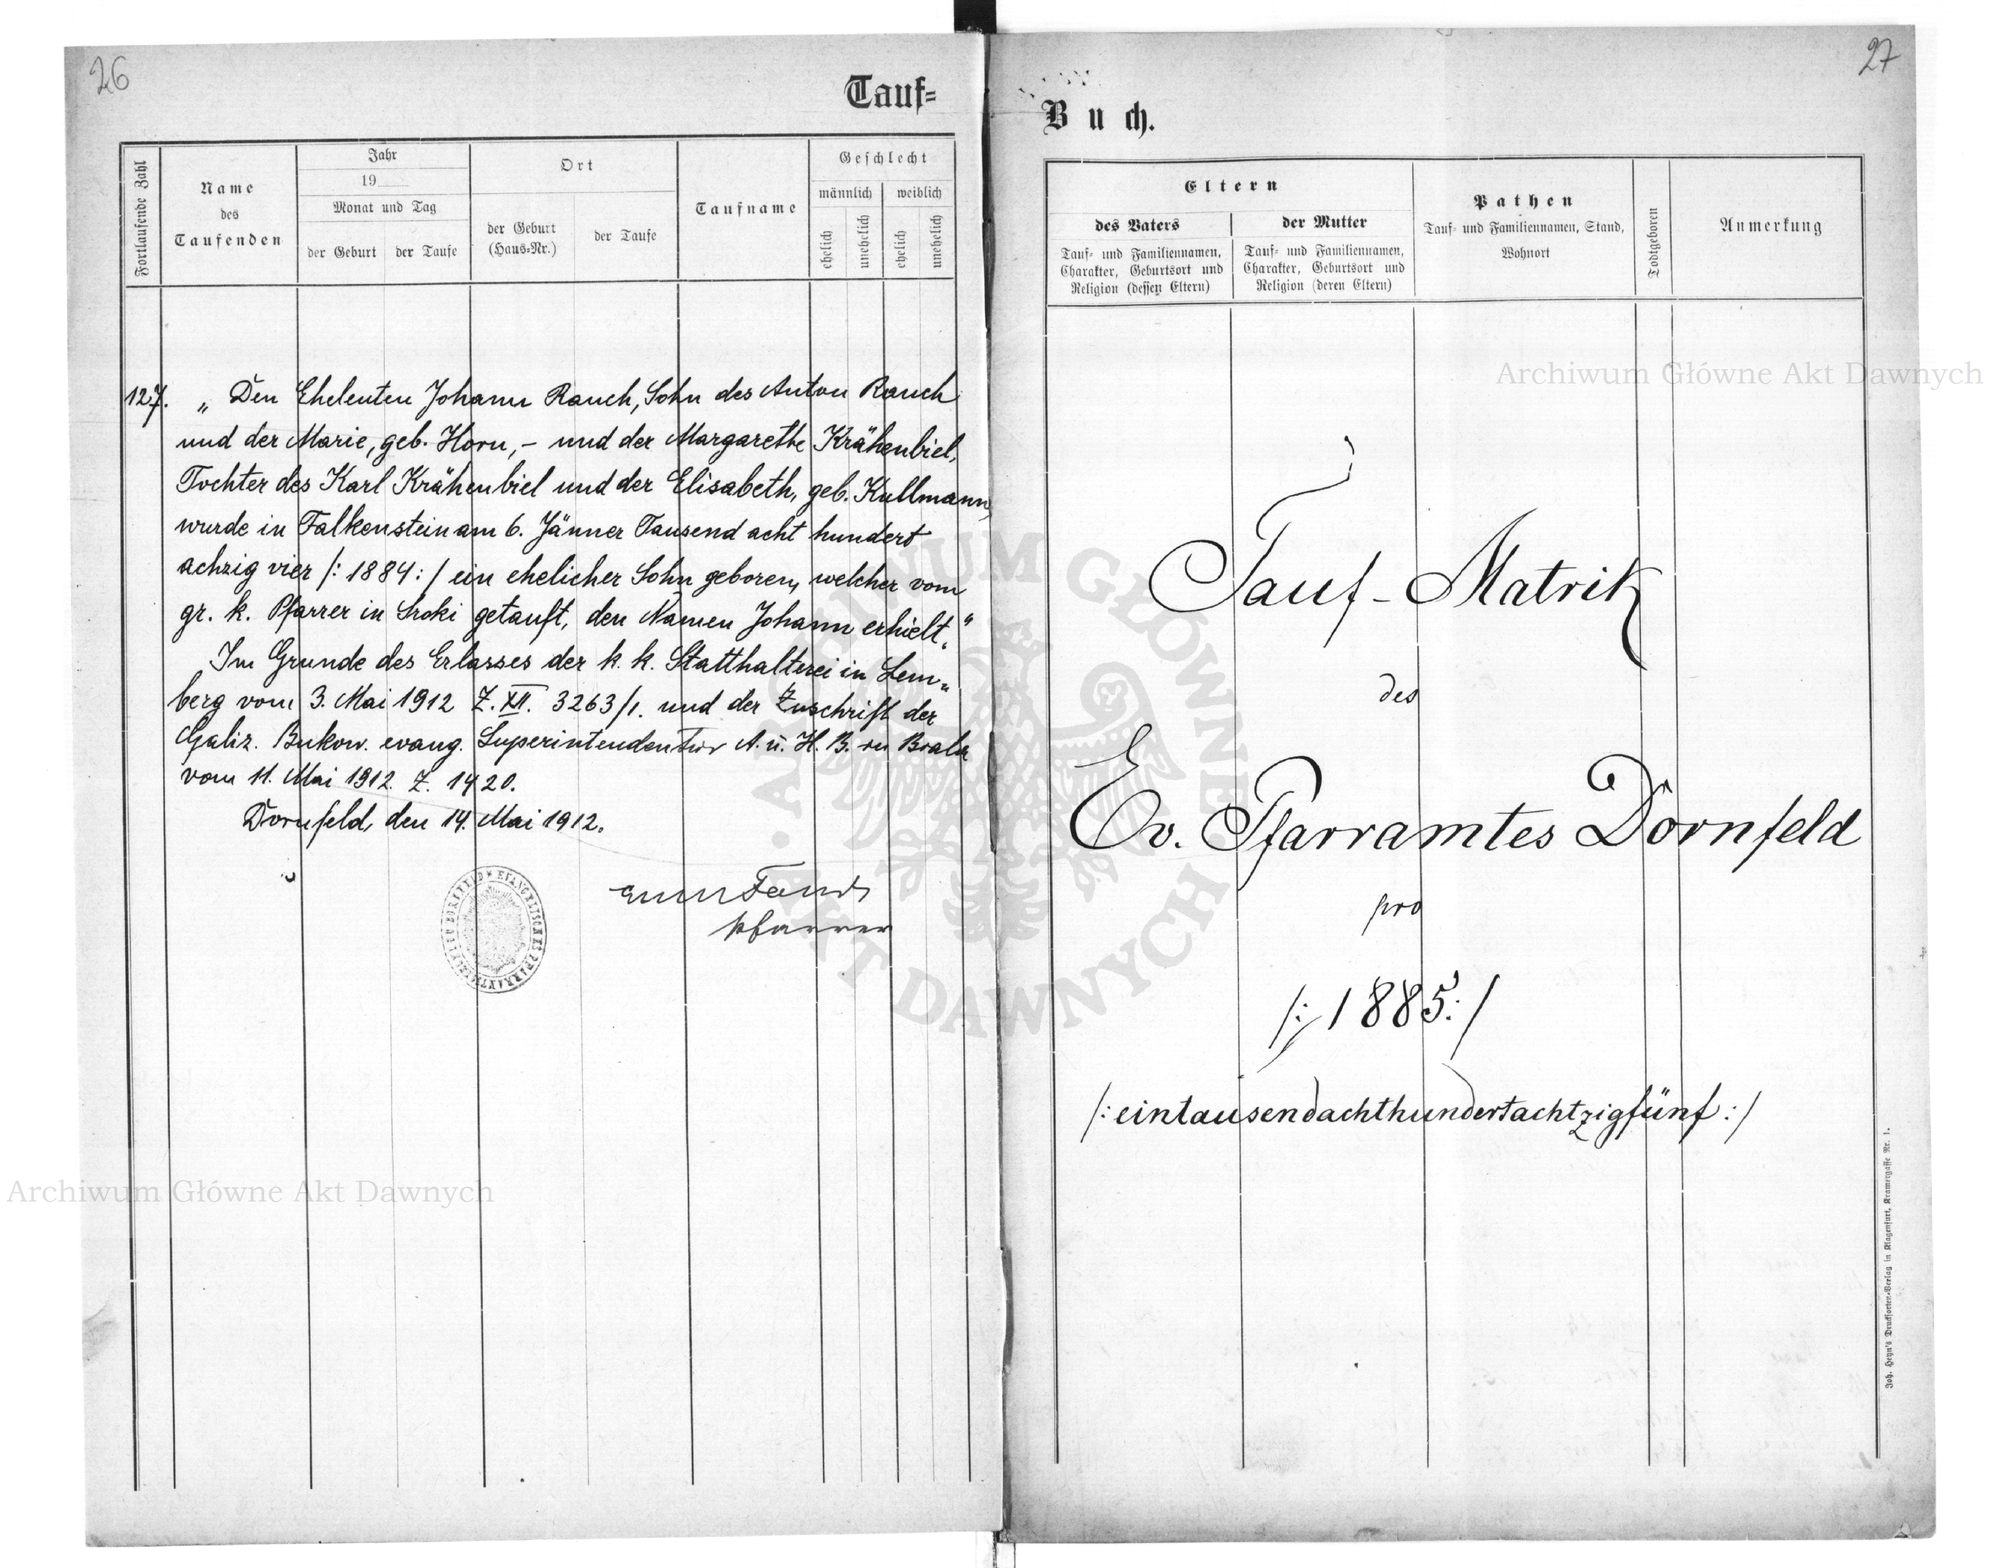 26
Tauf=
Fortlaufende Zahl
Name
des
Taufenden
Jahr
19
Monat und Tag
der Geburt
der Taufe
Ort
der Geburt
(Haus=Nr.)
der Taufe
Taufname
Geschlecht
männlich
weiblich
ehelich
unehelich
ehelich
unehelich
127. „ Den Eheleuten Johann Rauch, Sohn des Anton Rauch
und der Marie, geb. Horn, – und der Margarethe Krähenbiel,
Tochter des Karl Krähenbiel und der Elisabeth, geb. Kullmann,
wurde in Falkenstein am 6. Jänner Tausend acht hundert
achzig vier /: 1884 :/ ein ehelicher Sohn geboren, welcher vom
gr. k. Pfarrer in Sroki getauft, den Namen Johann erhielt.“
Im Grunde des Erlasses der k. k. Statthalterei in Lem„
berg vom 3. Mai 1912 Z. XII. 3263/1. und der Zuschrift der
Galiz. Bukow. evang. Superintendentur A. u. H. B. in Biala
vom 11. Mai 1912. Z. 1420.
Dornfeld, den 14. Mai 1912.
Pfarrer
27
Buch.
Eltern
des Vaters
Tauf= und Familiennamen,
Charakter, Geburtsort und
Religion (dessen Eltern)
der Mutter
Tauf= und Familiennamen,
Charakter, Geburtsort und
Religion (deren Eltern)
Pathen
Tauf= und Familiennamen, Stand,
Wohnort
Todtgeboren
Anmerkung
Tauf-Matrik
des
Ev. Pfarramtes Dornfeld
pro
/: 1885 :/
/: eintausendachthundertachtzigfünf :/
Joh. Heyn's Drucksorten=Verlag in Klagenfurt, Kramergasse Nr. 1.
Archiwum Główne Akt Dawnych
Archiwum Główne Akt Dawnych
ARCHIWUM GŁÓWNE • AKT DAWNYCH